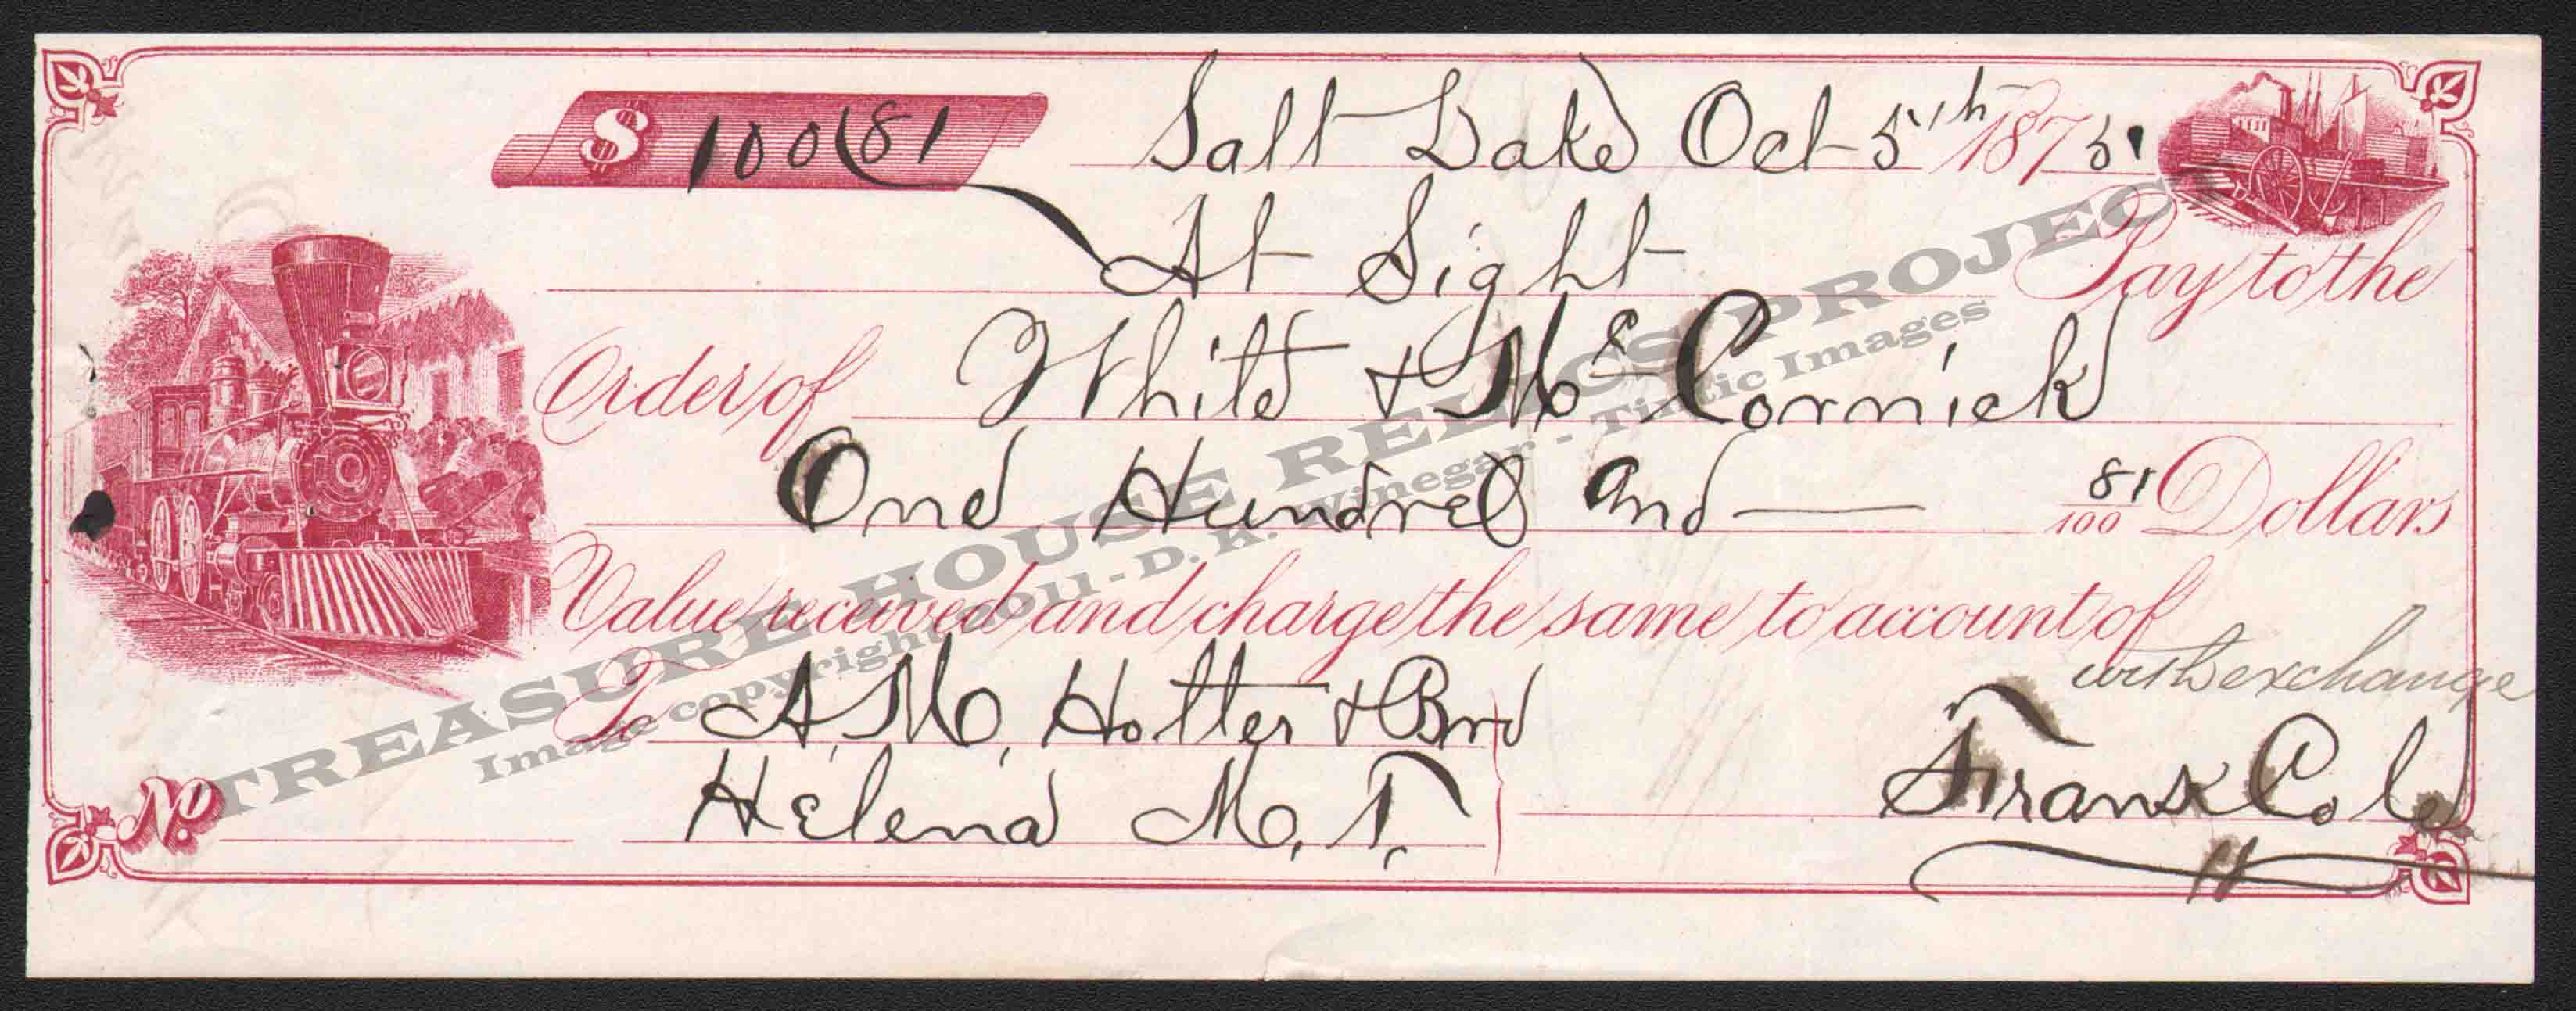 $ 100 81 Salt Lake Oct 5th 1875.
At Sight Pay to the
Order of White & McCormick
One Hundred and — 81/100 Dollars
Value received and charge the same to account of
with exchange
To A. M. Holter & Bro
Frank Cole
Helena M. T.
No.
TREASURE HOUSE RELICS PROJECT
Image copyright 2011 - D. K. Vinegar - Tintic Images